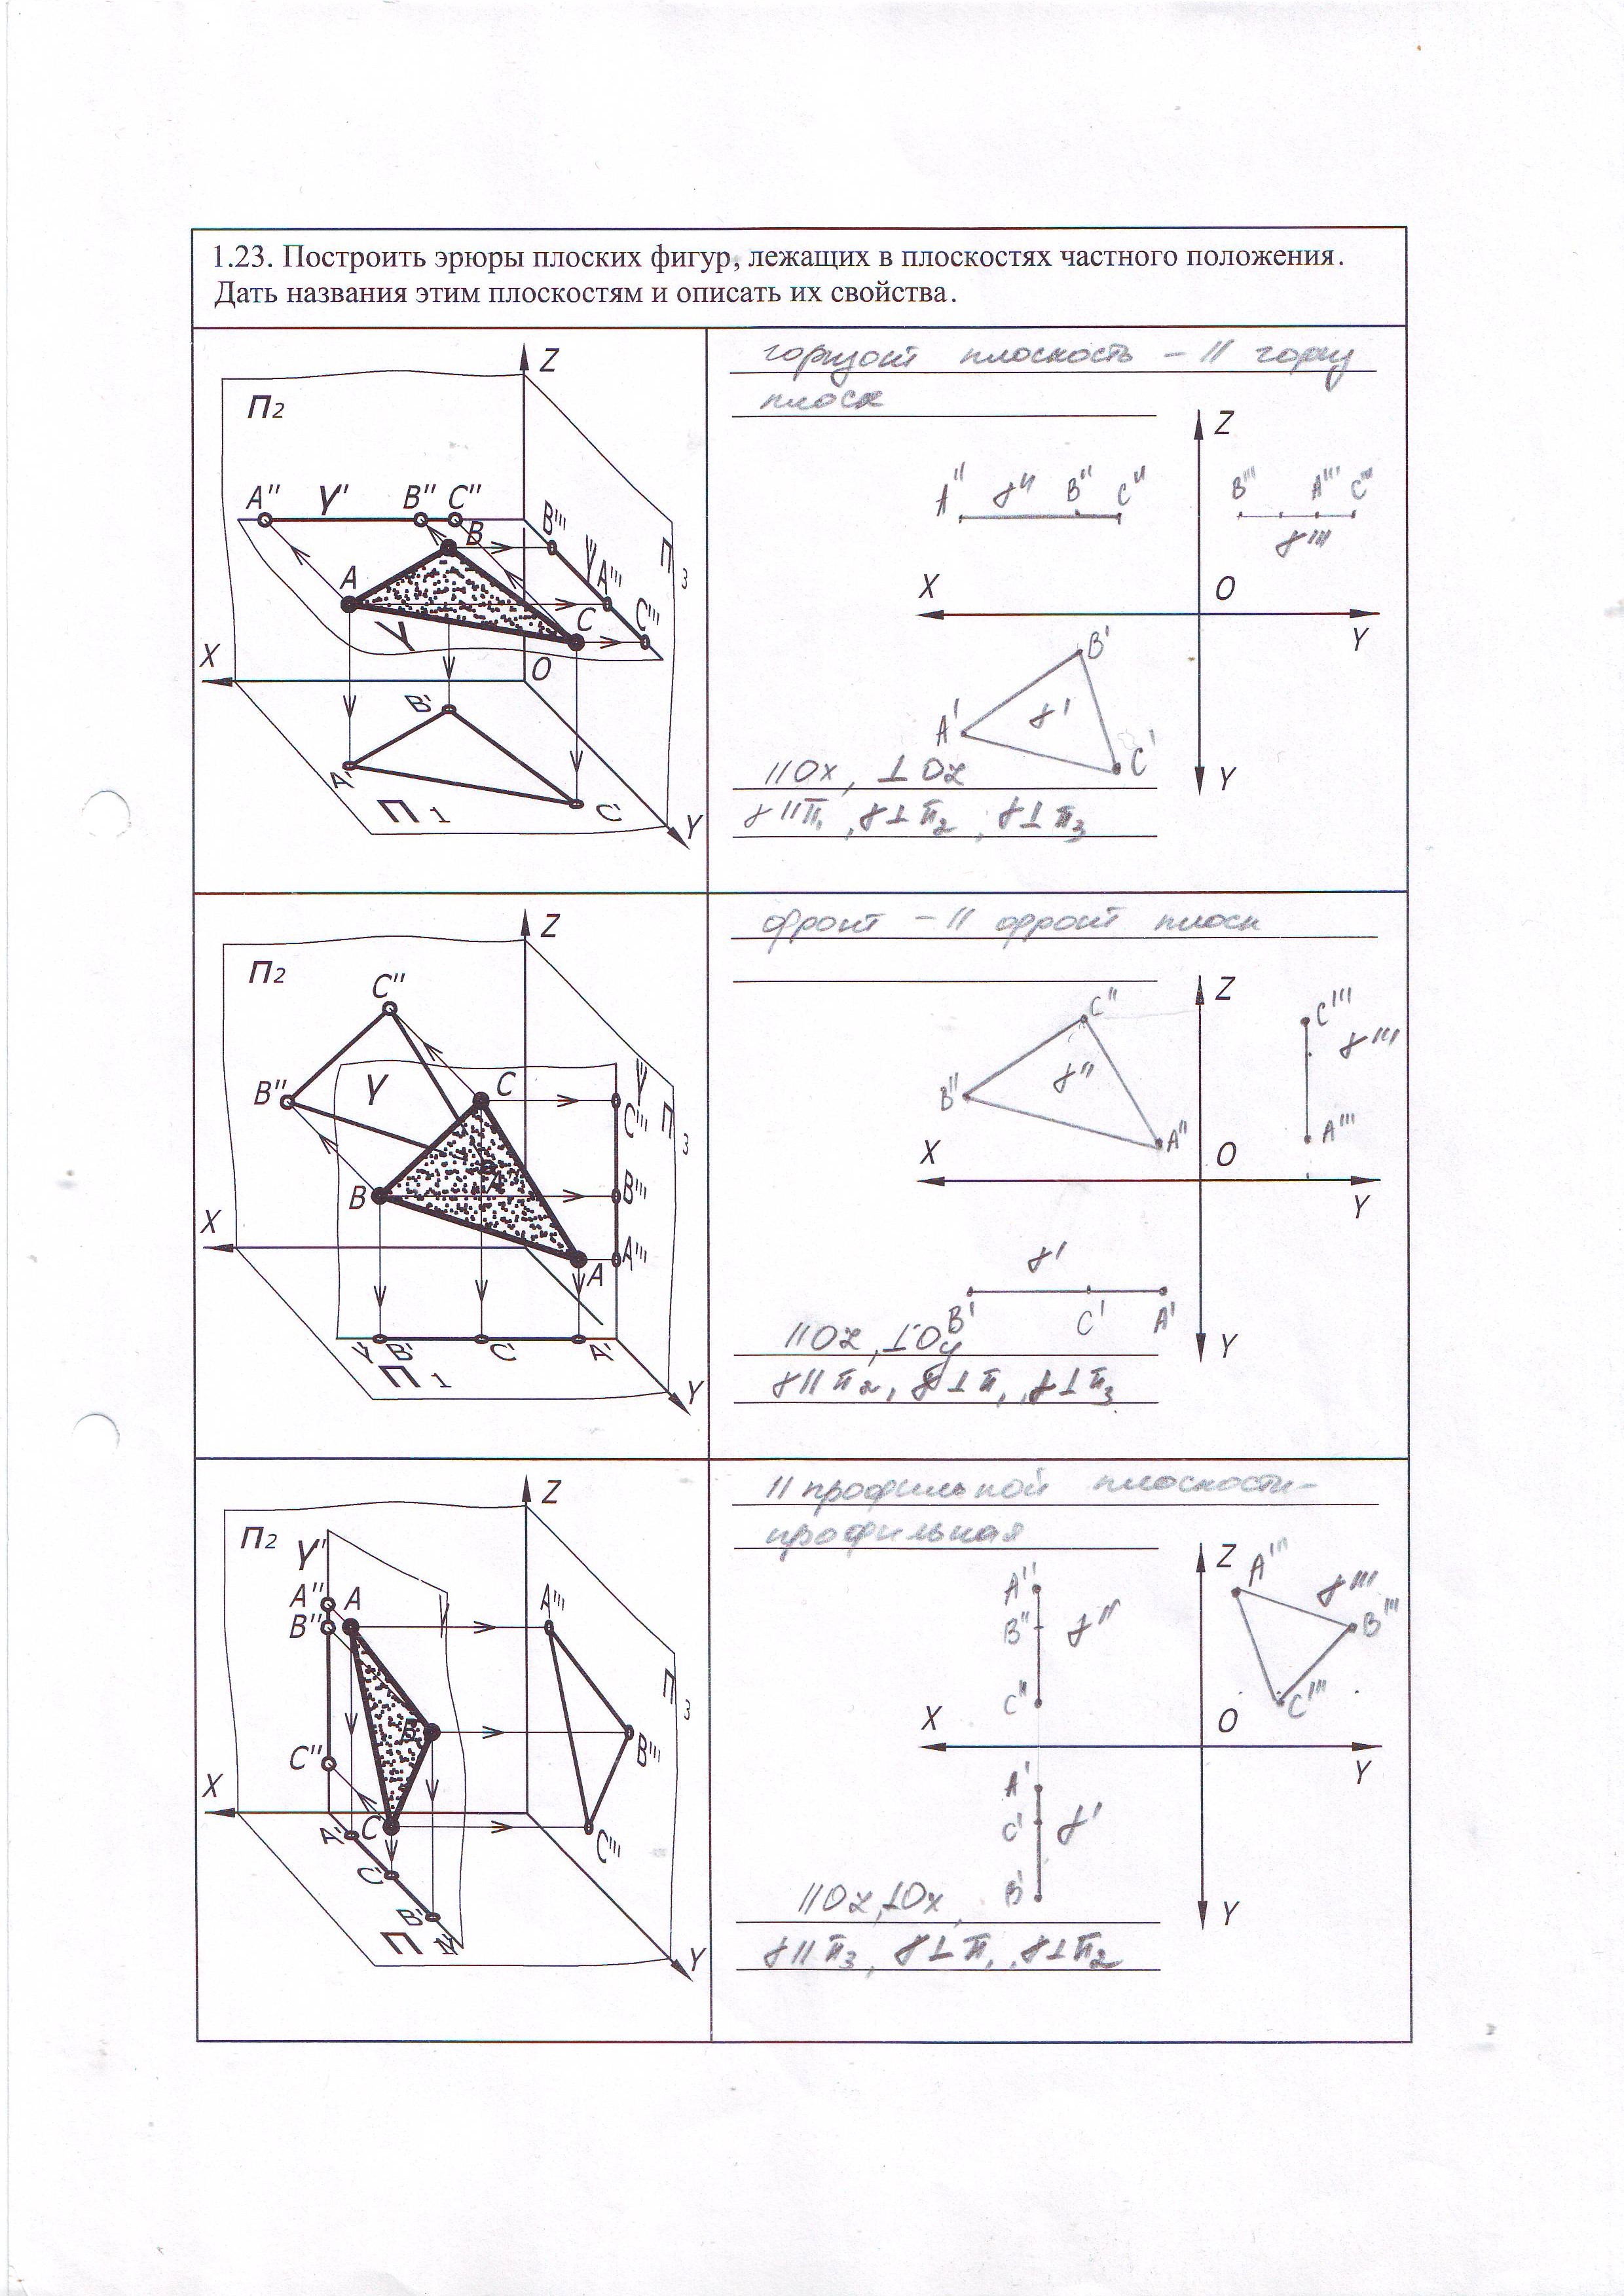 1.23. Построить эрюры плоских фигур, лежащих в плоскостях частного положения.
Дать названия этим плоскостям и описать их свойства.
Z
П2
A'' Y' B'' C''
B B''' Y П3
A A''' C'''
Y C
X O
B'
A' П1 C' Y
горизонт плоскость – || гориз
плоск
Z
A'' γ'' B'' C'' B''' A''' C'''
γ'''
X O Y
B'
A' γ' C'
||OX, ⊥OZ Y
γ||π₁, γ⊥π₂, γ⊥π₃
Z
П2
C''
B'' Y C Y П3
C'''
B A B'''
X A A'''
Y B' C' A'
П1 Y
фронт – || фронт плоск
Z
C'' C'''
γ'' γ'''
B'' A'' A'''
X O Y
γ'
B' C' A'
||OZ, ⊥Oy Y
γ||π₂, γ⊥π₁, γ⊥π₃
Z
П2
Y''
A'' A Y A'''
B'' П3
B B'''
C''
X C C'''
A'
C'
B'
П Y' Y
||профильной плоскости–
профильная
Z
A'' A'''
B'' γ'' γ''' B'''
C'' C'''
X O Y
A'
C' γ'
B'
||OZ, ⊥OX, Y
γ||π₃, γ⊥π₁, γ⊥π₂